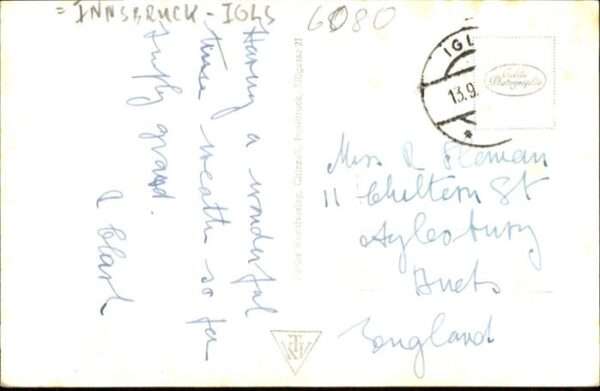 = INNSBRUCK - IGLS
6080
Having a wonderful
time weather so far
simply grand.
R Clark
IGL
13.9.
Echte
Photographie
Miss R
11 Chiltern St
Aylesbury
Bucks
England